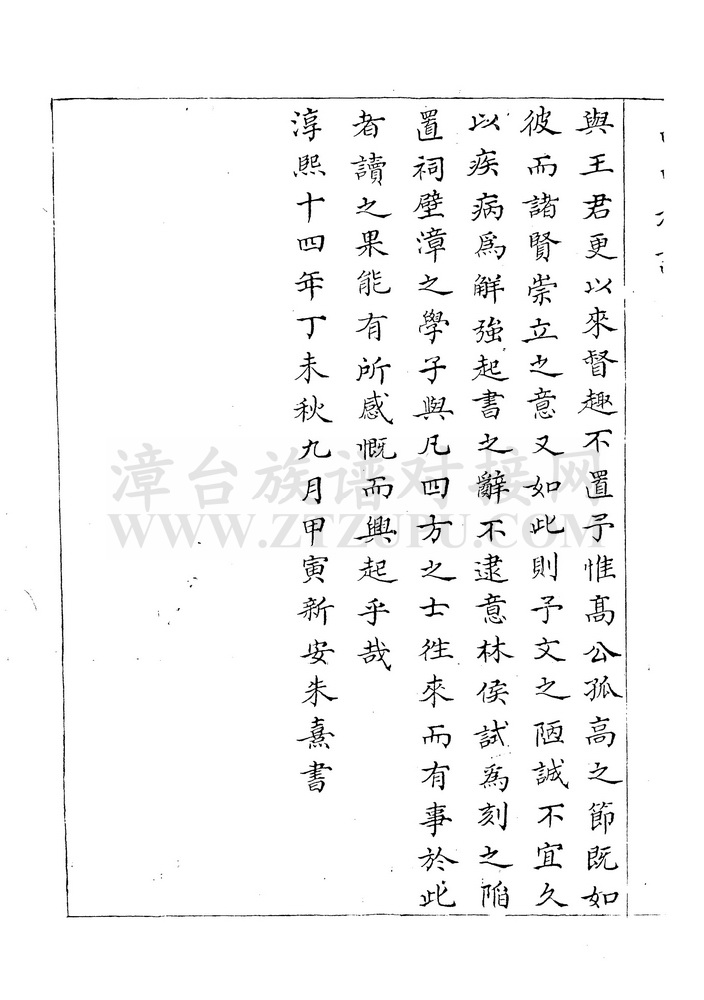 與王君更以來督趣不置予惟髙公孤高之節既如
彼而諸賢崇立之意又如此則予文之陋誠不宜久
以疾病爲解強起書之辭不逮意林侯試為刻之陷
置祠壁漳之學子與凡四方之士徃來而有事於此
者讀之果能有所感慨而興起乎哉
淳熙十四年丁未秋九月甲寅新安朱熹書
漳台族谱对接网
WWW.ZTZUPU.COM